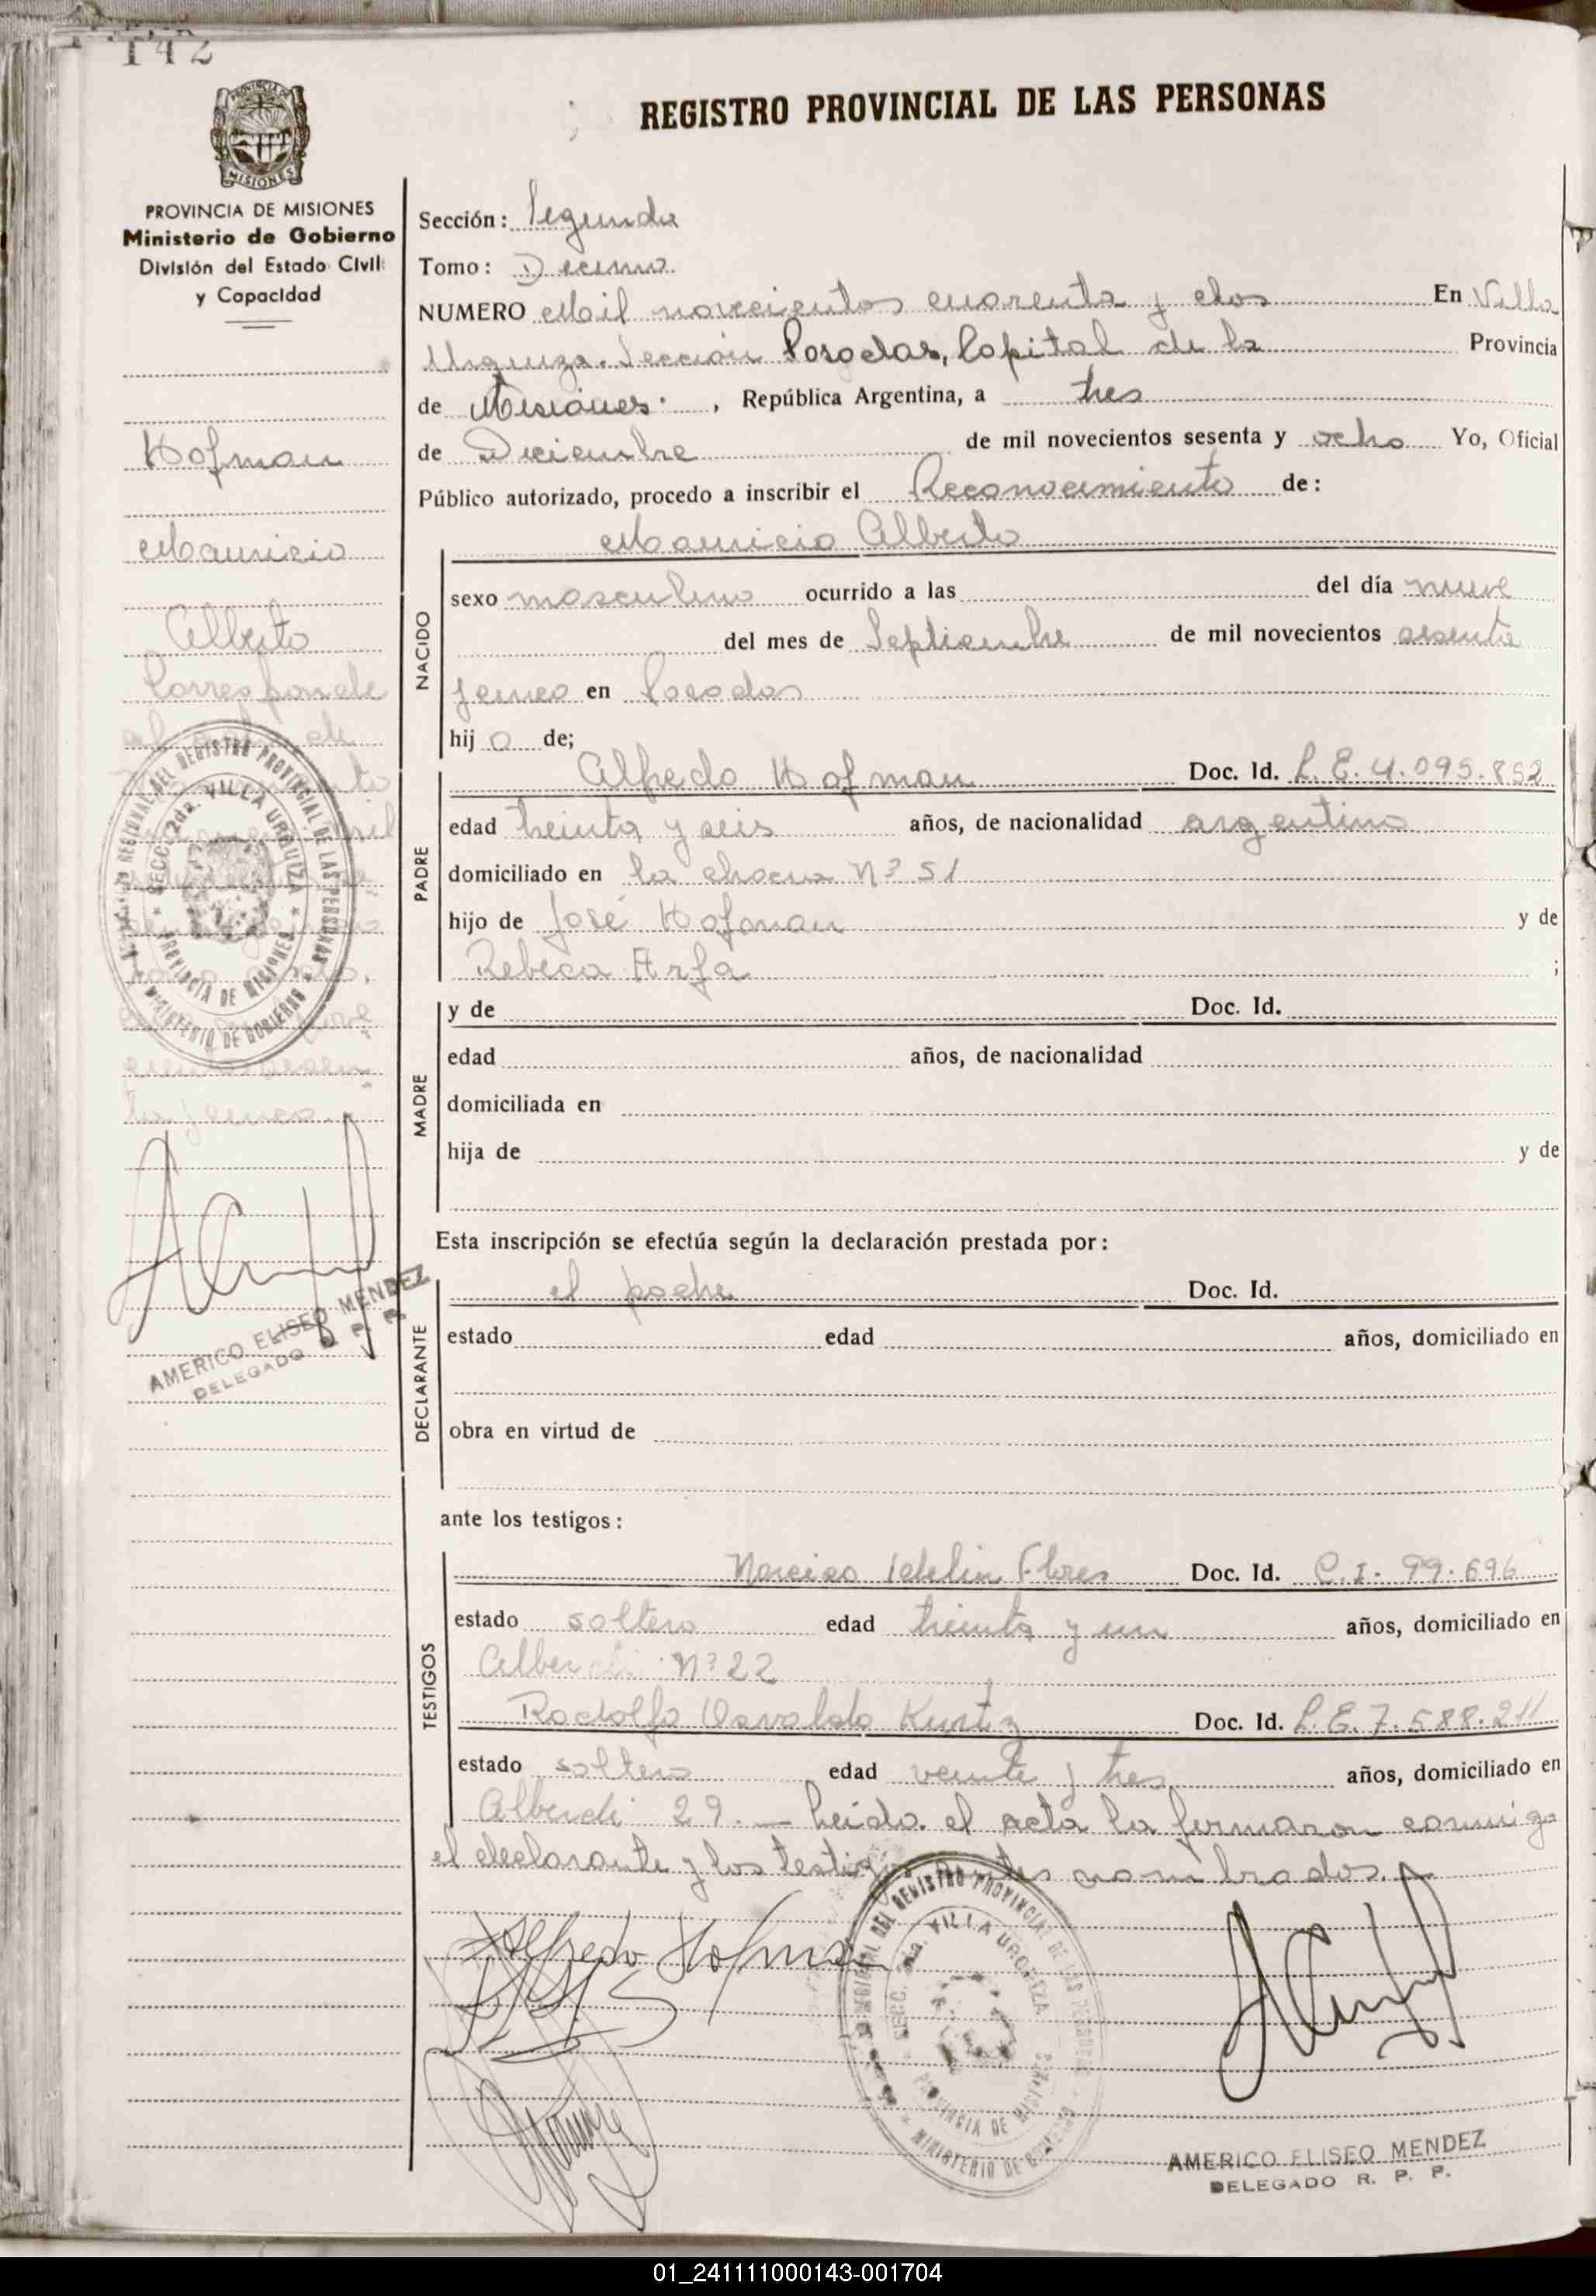 142
REGISTRO PROVINCIAL DE LAS PERSONAS
MISIONES
PROVINCIA DE MISIONES
Ministerio de Gobierno
División del Estado Civil
y Capacidad
Hofman
Mauricio
Alberto
Corresponde
Sección: Segunda
Tomo: Decimo.
NUMERO Mil novecientos cuarenta y dos En Villa
Urquiza. Sección Posadas, Capital de la Provincia
de Misiones. , República Argentina, a tres
de Diciembre de mil novecientos sesenta y ocho Yo, Oficial
Público autorizado, procedo a inscribir el Reconocimiento de:
Mauricio Alberto
NACIDO
sexo masculino ocurrido a las del día nueve
del mes de Septiembre de mil novecientos sesenta
y cinco en Posadas
hij o de;
PADRE
Alfredo Hofman Doc. Id. L.E. 4.095.852
edad treinta y seis años, de nacionalidad argentino
domiciliado en la chacra Nº 51
hijo de José Hofman y de
Rebeca Arfa ;
MADRE
y de Doc. Id.
edad años, de nacionalidad
domiciliada en
hija de y de
Esta inscripción se efectúa según la declaración prestada por:
DECLARANTE
el padre Doc. Id.
estado edad años, domiciliado en
obra en virtud de
ante los testigos:
TESTIGOS
Narciso Idelin Flores Doc. Id. C.I. 99.696
estado soltero edad treinta y un años, domiciliado en
Alberdi Nº 22
Rodolfo Osvaldo Kurtz Doc. Id. L.E. 7.588.211
estado soltero edad veinte y tres años, domiciliado en
Alberdi 29. — Leída el acta la firmaron conmigo
el declarante y los testigos antes nombrados.
Alfredo Hofman
REGIONAL DEL REGISTRO PROVINCIAL DE LAS PERSONAS
SECC. 2da. VILLA URQUIZA
PROVINCIA DE MISIONES
MINISTERIO DE GOBIERNO
AMERICO ELISEO MENDEZ
DELEGADO R. P. P.
AMERICO ELISEO MENDEZ
DELEGADO R. P. P.
01_241111000143-001704